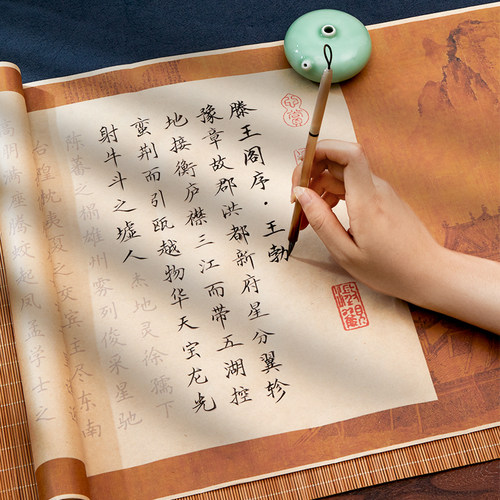 滕王阁序·王勃
豫章故郡洪都新府星分翼轸
地接衡庐襟三江而带五湖控
蛮荆而引瓯越物华天宝龙光
射牛斗之墟人杰地灵徐孺下
陈蕃之榻雄州雾列俊采星驰
台隍枕夷夏之交宾主尽东南
朋满座腾蛟起凤孟学士之